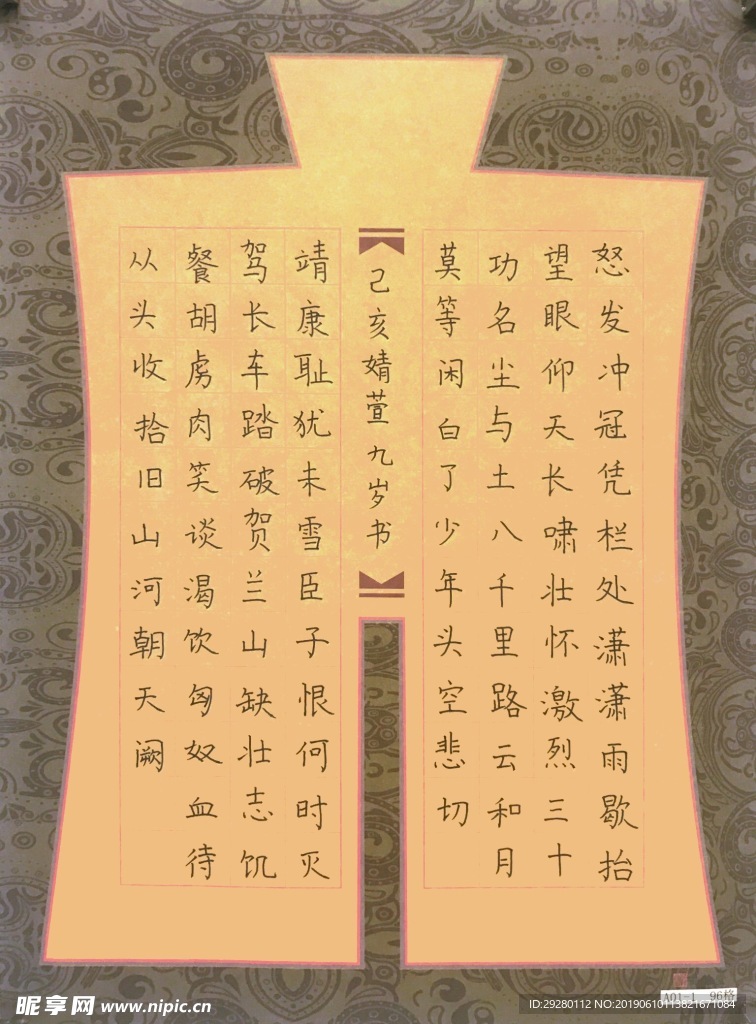 怒发冲冠凭栏处潇潇雨歇抬
望眼仰天长啸壮怀激烈三十
功名尘与土八千里路云和月
莫等闲白了少年头空悲切
己亥婧萱九岁书
靖康耻犹未雪臣子恨何时灭
驾长车踏破贺兰山缺壮志饥
餐胡虏肉笑谈渴饮匈奴血待
从头收拾旧山河朝天阙
A01-1 96格
昵享网 www.nipic.cn
ID:29280112 NO:20190610113821671084